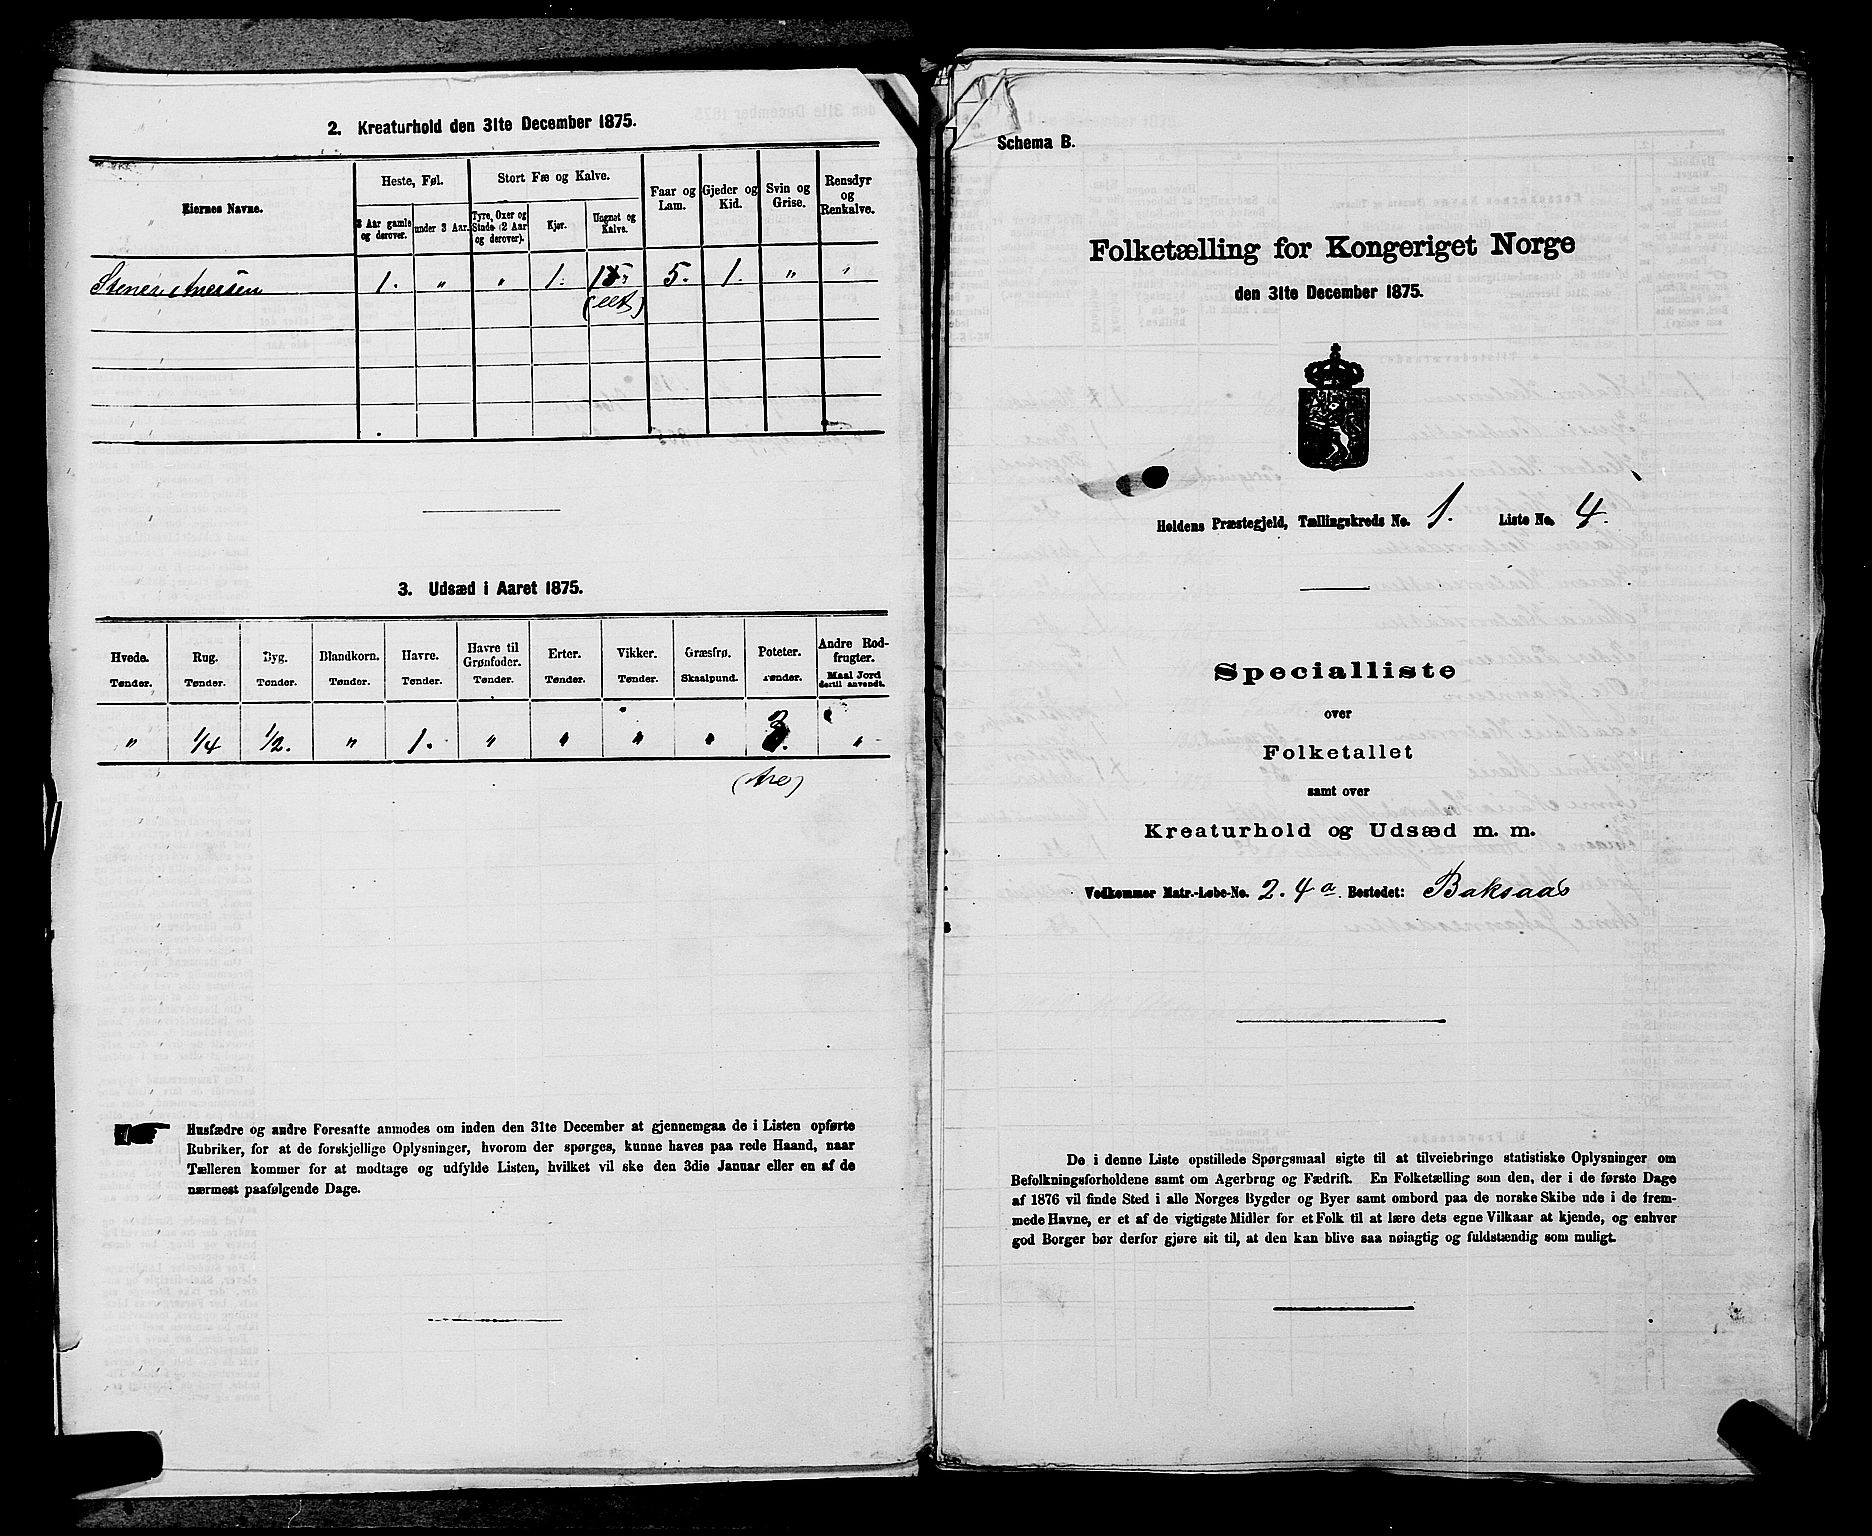 2. Kreaturhold den 31te December 1875.
Eiernes Navne.
Heste, Føl.
3 Aar gamle og derover.
under 3 Aar.
Stort Fæ og Kalve.
Tyre, Oxer og Stude (2 Aar og derover).
Kjør.
Ungnøt og Kalve.
Faar og Lam.
Gjeder og Kid.
Svin og Grise.
Rensdyr og Renkalve.
1. " " 1. 5. 1. " "
3. Udsæd i Aaret 1875.
Hvede. Rug. Byg. Blandkorn. Havre. Havre til Grønfoder. Erter. Vikker. Græsfrø. Poteter. Andre Rodfrugter.
Tønder. Tønder. Tønder. Tønder. Tønder. Tønder. Tønder. Tønder. Skaalpund. Tønder. Maal Jord dertil anvendt.
" 1/4 1/2. " 1. " " " " 3. "
(tre)
Husfædre og andre Foresatte anmodes om inden den 31te December at gjennemgaa de i Listen opførte
Rubriker, for at de forskjellige Oplysninger, hvorom der spørges, kunne haves paa rede Haand, naar
Tælleren kommer for at modtage og udfylde Listen, hvilket vil ske den 3die Januar eller en af de
nærmest paafølgende Dage.
Schema B.
Folketælling for Kongeriget Norge
den 31te December 1875.
Holdens Præstegjeld, Tællingskreds No. 1. Liste No. 4.
Specialliste
over
Folketallet
samt over
Kreaturhold og Udsæd m. m.
Vedkommer Matr.-Løbe-No. 2. 4a Bostedet: Baksaas
De i denne Liste opstillede Spørgsmaal sigte til at tilveiebringe statistiske Oplysninger om
Befolkningsforholdene samt om Agerbrug og Fædrift. En Folketælling som den, der i de første Dage
af 1876 vil finde Sted i alle Norges Bygder og Byer samt ombord paa de norske Skibe ude i de frem-
mede Havne, er et af de vigtigste Midler for et Folk til at lære dets egne Vilkaar at kjende, og enhver
god Borger bør derfor gjøre sit til, at den kan blive saa nøiagtig og fuldstændig som muligt.